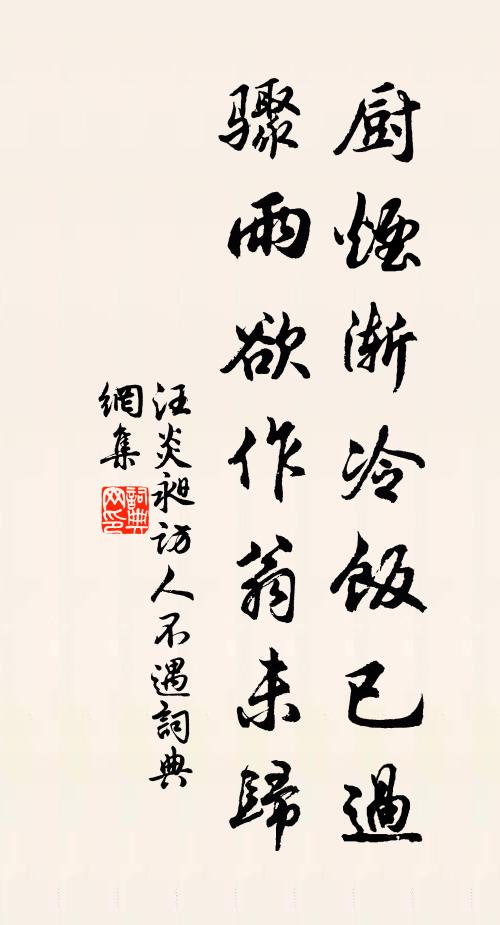 厨煙漸冷飯已過
驟雨欲作翁未歸
汪炎昶訪人不遇詞典
網集
詞典
网印